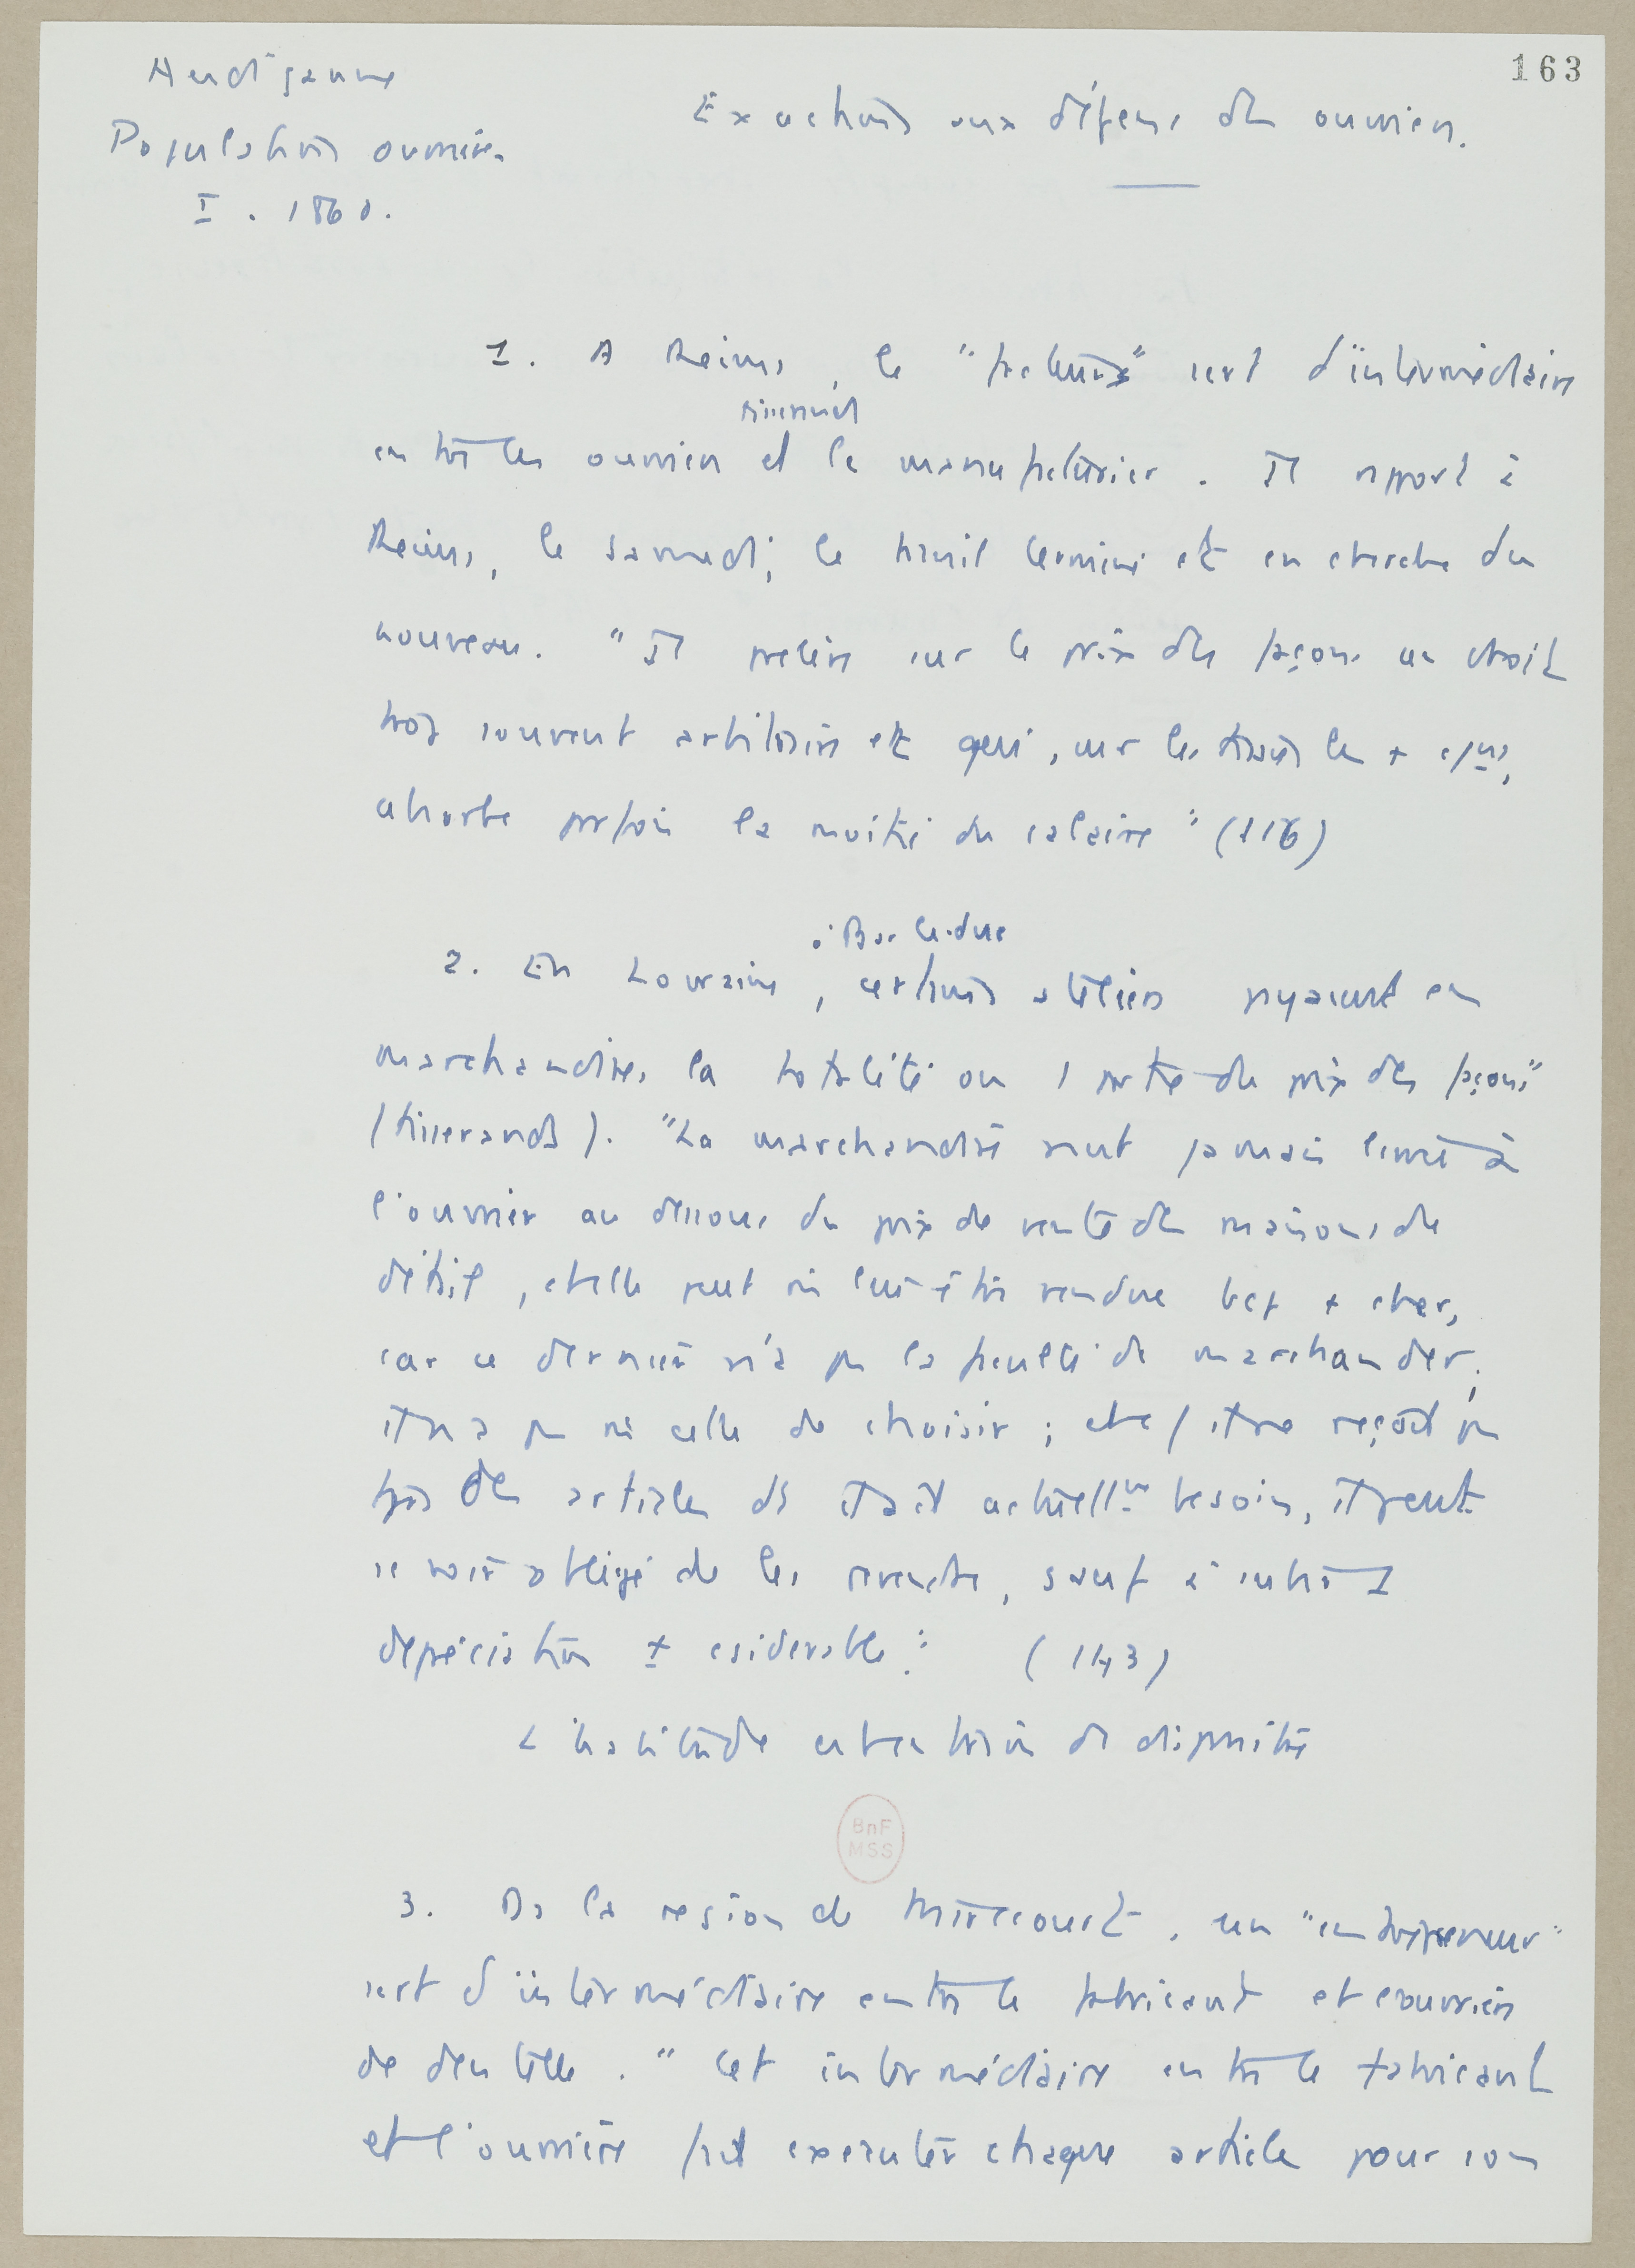 163
Audiganne
Populations ouvrières
I. 1860.
Exactions aux dépens des ouvriers.
1. A Reims, le "facteur" sert d'intermédiaire
entre les ouvriers et le manufacturier. Il apporte à
Reims, le samedi, le travail terminé et en cherche du
nouveau. "Il prélève sur le prix des façons un droit
trop souvent arbitraire et qui, sur les tissus les +
absorbe parfois la moitié du salaire" (116)
à Bar le duc
2. En Lorraine, certains ateliers payaient en
marchandises la totalité ou 1 partie du prix des façons"
(tisserands). "La marchandise n'est jamais livrée à
l'ouvrier au dessous du prix de vente des maisons de
détail, et elle peut lui être vendue bcp + cher,
car ce dernier n'a pas la faculté de marchander;
il n'a pas celle de choisir; et il ne reçoit pas
des articles dt il ait actuellt besoin, il peut
se voir obligé de les revendre, sauf à subir 1
dépréciation ± csidérable". (143)
L'habitude est en train de disparaître
BnF
MSS
3. Ds la région de Mirecourt, un "entrepreneur"
sert d'intermédiaire entre le fabricant et l'ouvrière
de dentelle. "Cet intermédiaire entre le fabricant
et l'ouvrière fait exécuter chaque article pour son